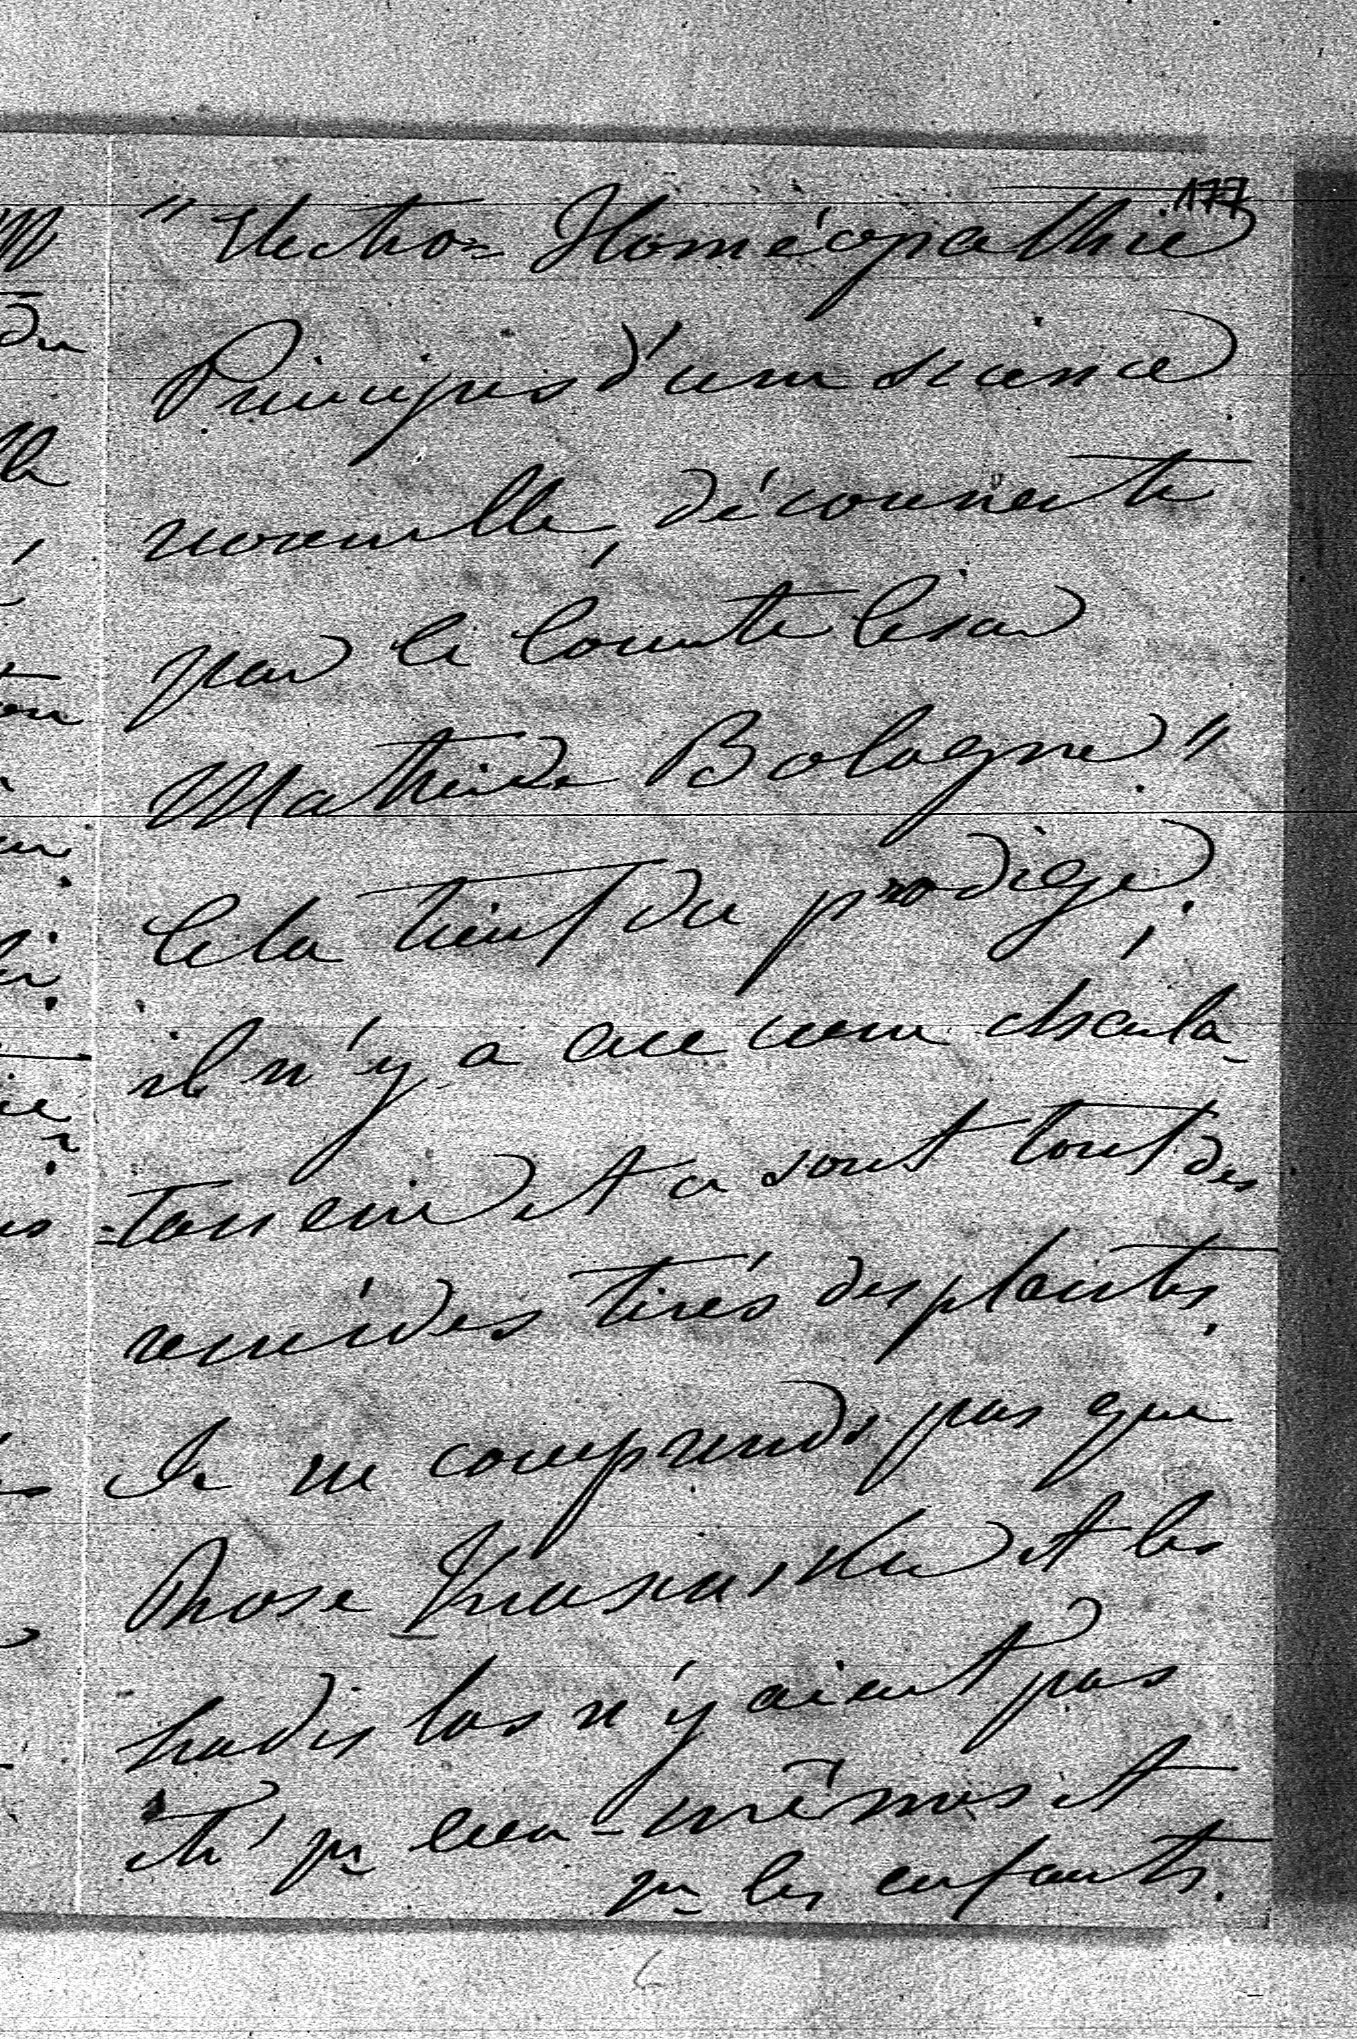 177
"Electro-Homéopathie
Principes d'une science
nouvelle, découverte
par le Comte César
Matteide Bologne."
Cela tient du prodige!
il n'y a aucune charla-
=tannerie et ce sont tout des
remèdes tirés des plantes.
Je ne comprends pas que
Rose et les
ladislas n'y aient pas
été pr eux-mêmes et
pr les enfants.